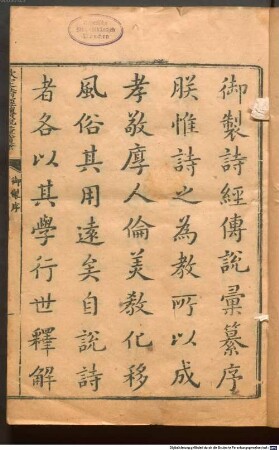 御製詩經傳說彙纂序
朕惟詩之為教所以成
孝敬厚人倫美教化移
風俗其用遠矣自說詩
者各以其學行世釋解
御製序